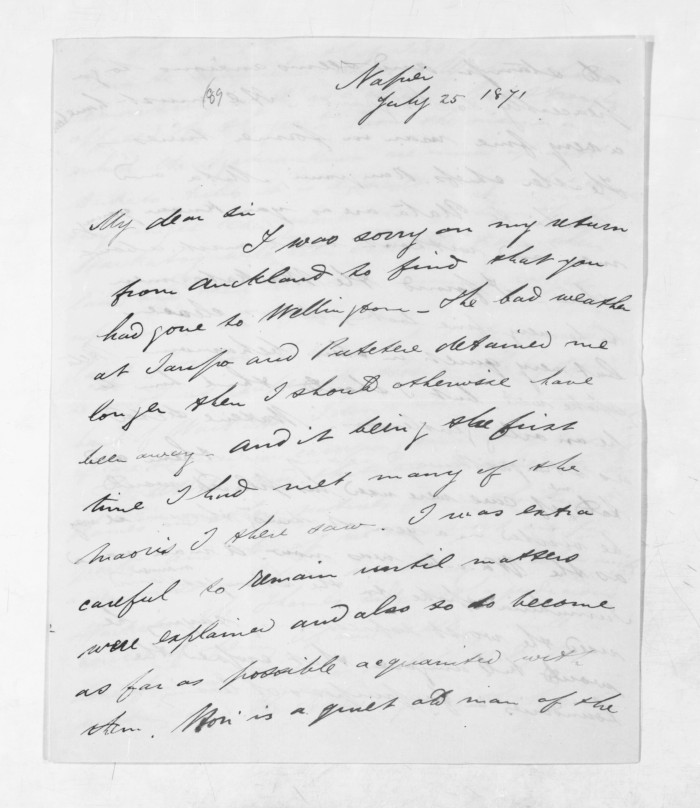 Napier
(89
July 25 1871
My dear Sir
I was sorry on my return
from Auckland to find that you
had gone to Wellington – The bad weather
at Taupo and Putetere detained me
longer then I should otherwise have
been away – and it being the first
time I had met many of the
Maoris I there saw. I was extra
careful to remain until matters
were explained and also so to become
as far as possible acquainted with
them. Hori is a quiet old man of the